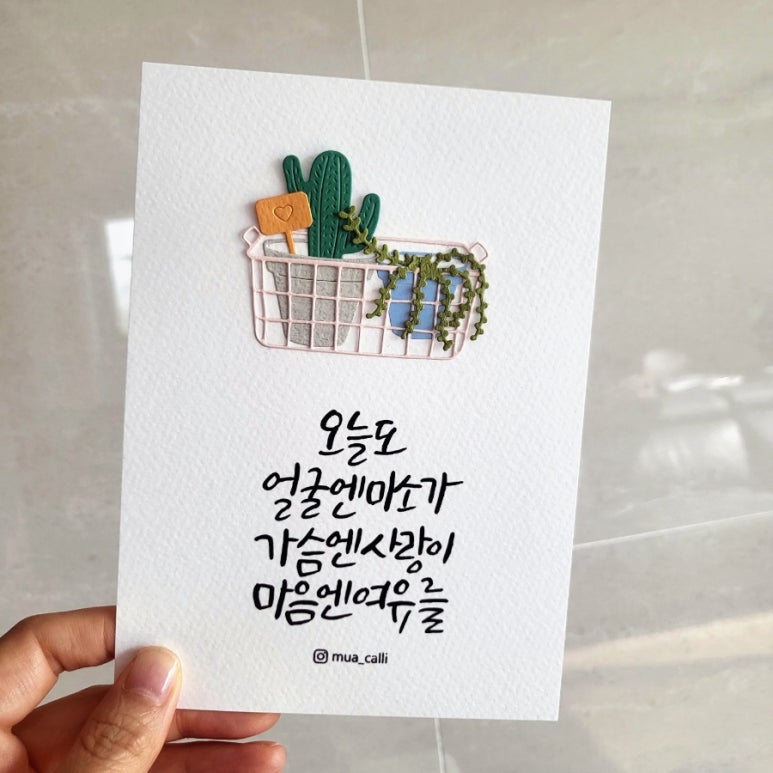 오늘도
얼굴엔미소가
가슴엔사랑이
마음엔여유를
mua_calli